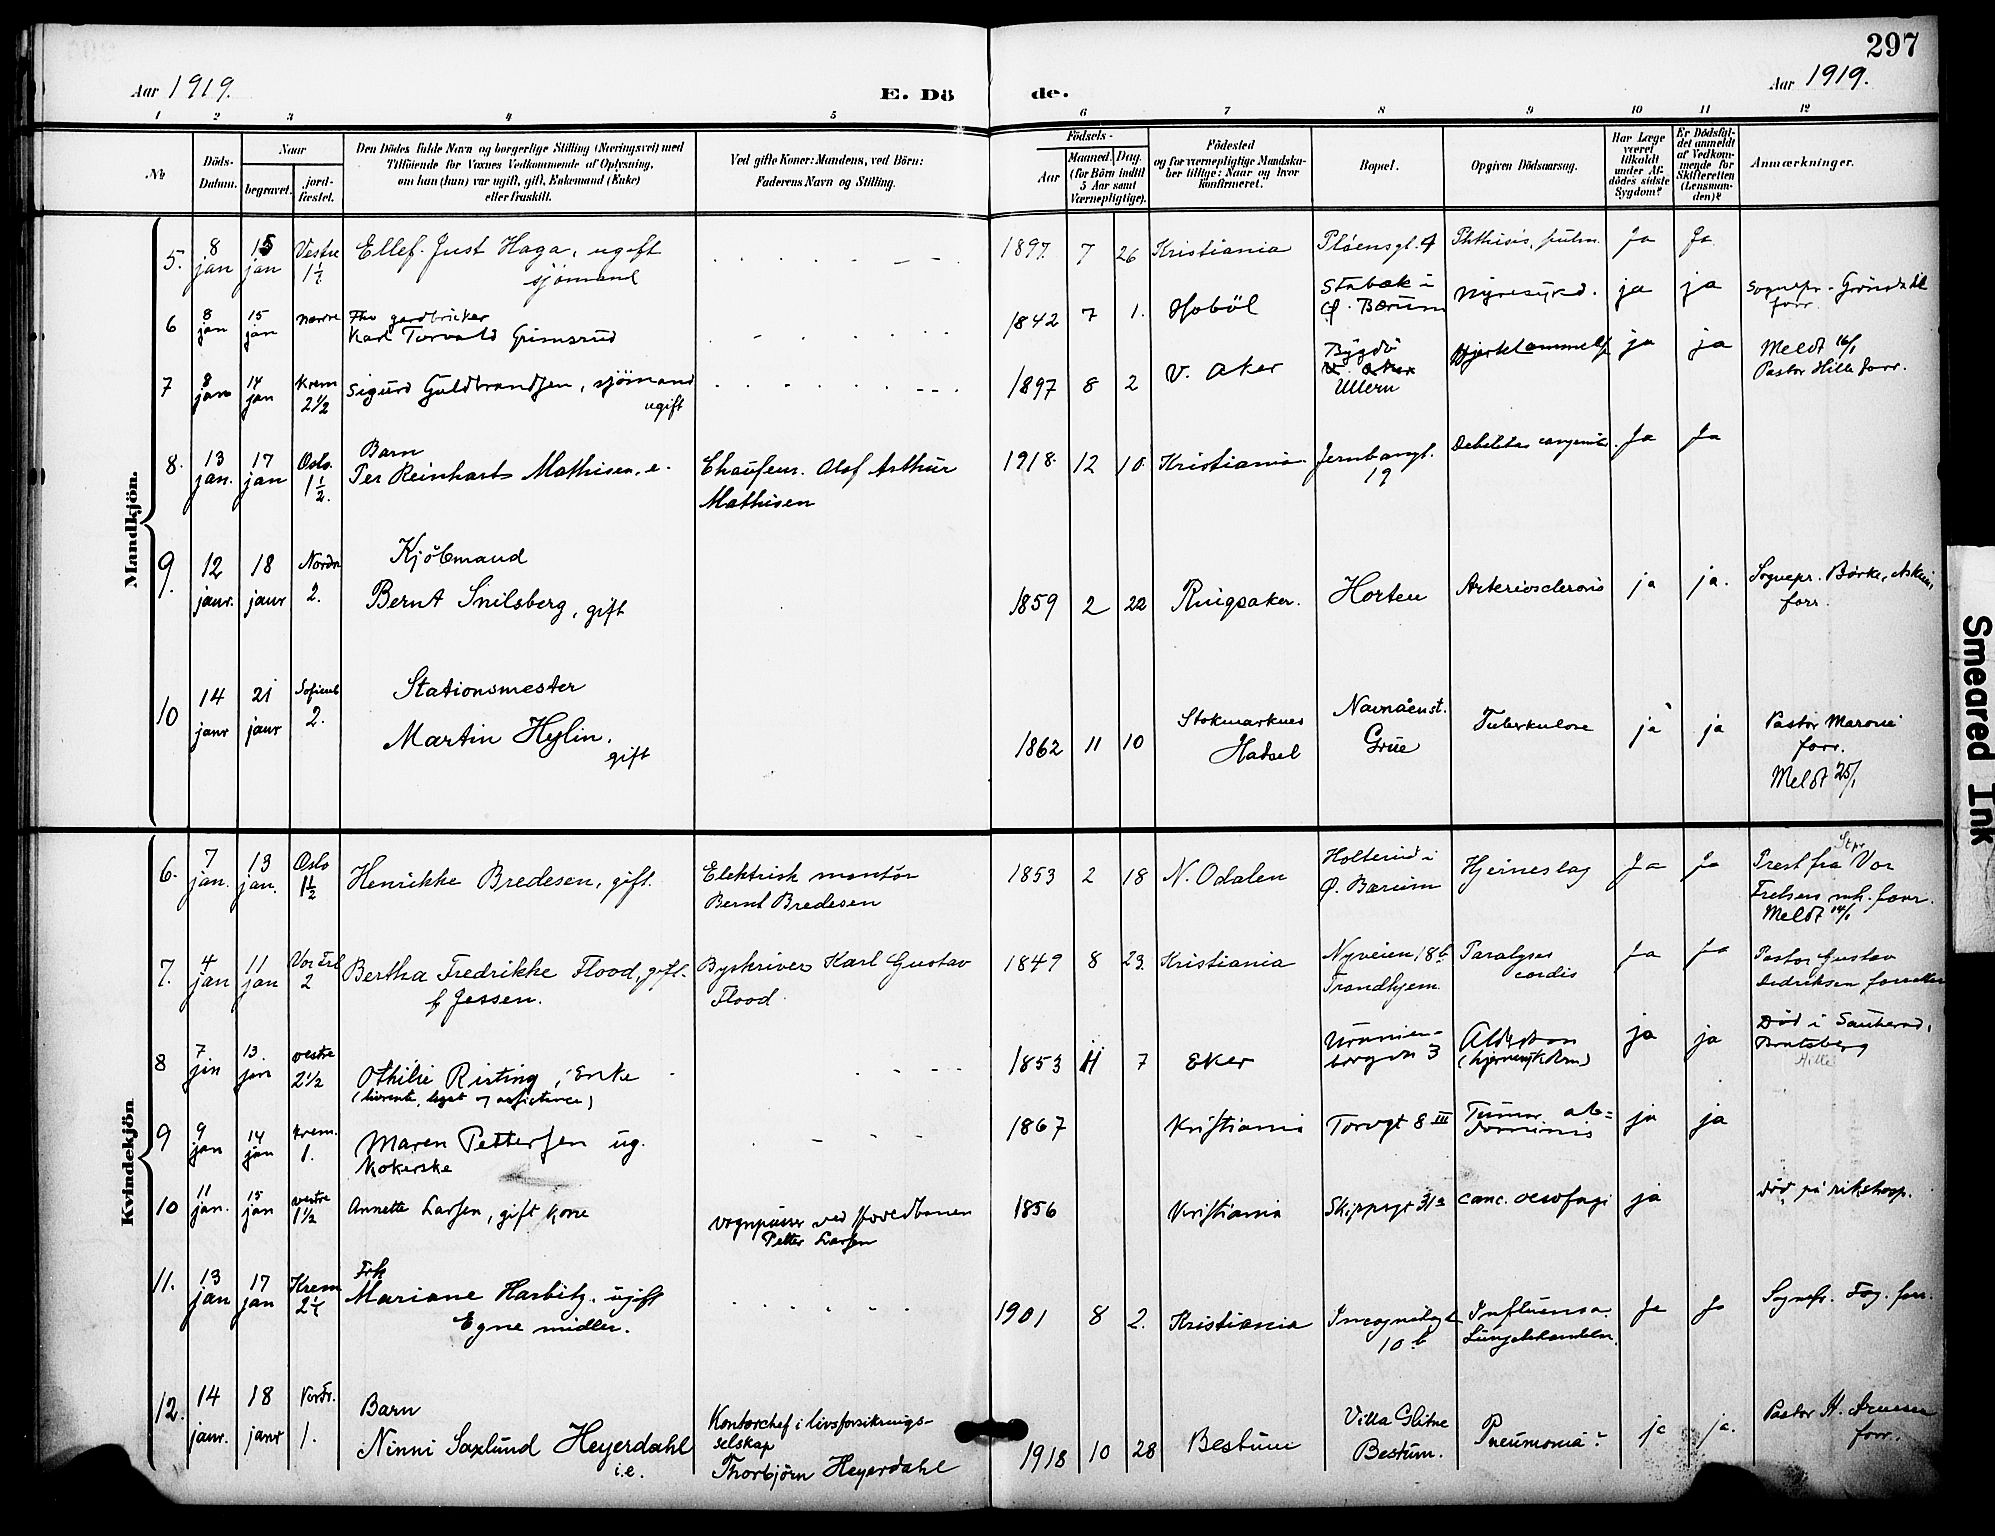 297
Aar 1919.
E. Dö de.
Aar 1919.
1 2 3 4 5 6 7 8 9 10 11 12
No
Döds-Datum.
Naar
begravet.
jordfæstet.
Den Dödes fulde Navn og borgerlige Stilling (Næringsvei) med
Tilföiende for Voxnes Vedkommende af Oplysning,
om han (hun) var ugift, gift, Enkemand (Enke)
eller fraskilt.
Ved gifte Koner: Mandens, ved Börn:
Faderens Navn og Stilling.
Födsels-
Aar
Maaned. Dag.
(for Börn indtil
5 Aar samt
Værnepligtige).
Födested
og for værnepligtige Mandska-
ber tillige: Naar og hvor
konfirmeret.
Bopæl.
Opgiven Dödsaarsag.
Har Læge
været
tilkaldt
under Af-
dödes sidste
Sygdom?
Er Dödsfal-
det anmeldt
af Vedkom-
mende for
Skifteretten
(Lensman-
den)?
Anmærkninger.
Mandkjön.
5. 8 jan 15 jan Vestre 1½ Ellef Just Haga, ugift sjømand 1897 7 26 Kristiania Pløensgt. 4 Phthisis pulm. Ja Ja
6 8 jan 15 jan nordre Fhv gardbruker Karl Torvald Grimsrud 1842 7 1. Hobøl Stabæk i Ø. Bærum Nyresykd. ja ja Sognepr. Grøndahl forr.
7 8 jan 14 jan Krem 2½ Sigurd Guldbrandsen, sjömand ugift 1897 8 2 V. Aker Bygdö V. Aker Ullern Hjertelammelse ja ja Meldt 16/1 Pastor Hille forr.
8. 13 jan. 17 jan Oslo 1½. Barn Per Reinhart Mathisen, e. Chauffeur Olaf Arthur Mathisen 1918. 12 10. Kristiania Jernbanegt. 19 Debilitas congenita. Ja Ja
9. 12 janr. 18 janr Nordre 2. Kjøbmand Bernt Snilsberg, gift 1859 2 22 Ringsaker. Horten Arteriosclerosis ja ja. Sognepr. Børke, Askim, forr.
10 14 janr 21 janr Sofienb 2. Stationsmester Martin Hylin. gift 1862 11 10 Stokmarknes Hadsel Navnåen st. Grue Tuberkulose ja ja Pastor Maroni forr. Meldt 25/1
Kvindekjön
6. 7 jan. 13 jan. Oslo 1½ Henrikke Bredesen, gift. Elektrisk montør Bernt Bredesen 1853 2 18 N. Odalen Holterud i Ø. Bærum Hjerneslag Ja Ja Prest fra Vor Frelsers mh. forr. Meldt 14/1
7. 4 jan 11 jan Vor Frl 2 Bertha Fredrikke Flood, gift. f Jessen. Byskriver Karl Gustav Flood. 1849 8 23. Kristiania Nyveien 18b Trondhjem Paralyses cordis Ja Ja Pastor Gustav Dedriksen forrettet
8 7 jan 13. jan vestre 2½ Othilie Risting, Enke (livrente, legat og assistance) 1853 11 7 Eker Uranienborgvn 3 Alderdom (hjernesykdom) ja ja Død i Sauherad, Bratsberg Hille
9 9 jan 14 jan Krem. 1. Maren Pettersen ug. Kokerske 1867 Kristiania Torvgt 8 III Tumor abdominis ja ja
10 11 jan. 15 jan vestre 1½ Annette Larsen, gift kone vognpusser ved Hovedbanen Petter Larsen 1856 Kristiania Skippergt 31a canc. oesofagi ja død på rikshosp.
11. 13 jan 17 jan Krem 2½ Frk Mariane Harbitz. ugift Egne midler. 1901 8 2. Kristiania Incognitogt 10b Influensa. Lungebetændelse. Ja Ja Sognepr. Fog. forr.
12. 14 janr. 18 janr Vor Fr. 1. Barn Ninni Saxlund Heyerdahl i.e. Kontorchef i livsforsikrings-selskap Thorbjørn Heyerdahl 1918 10 28 Bestum Villa Glitne Bestum. Pneumonia? ja ja. Pastor H. Arnesen forr.
Smeared Ink